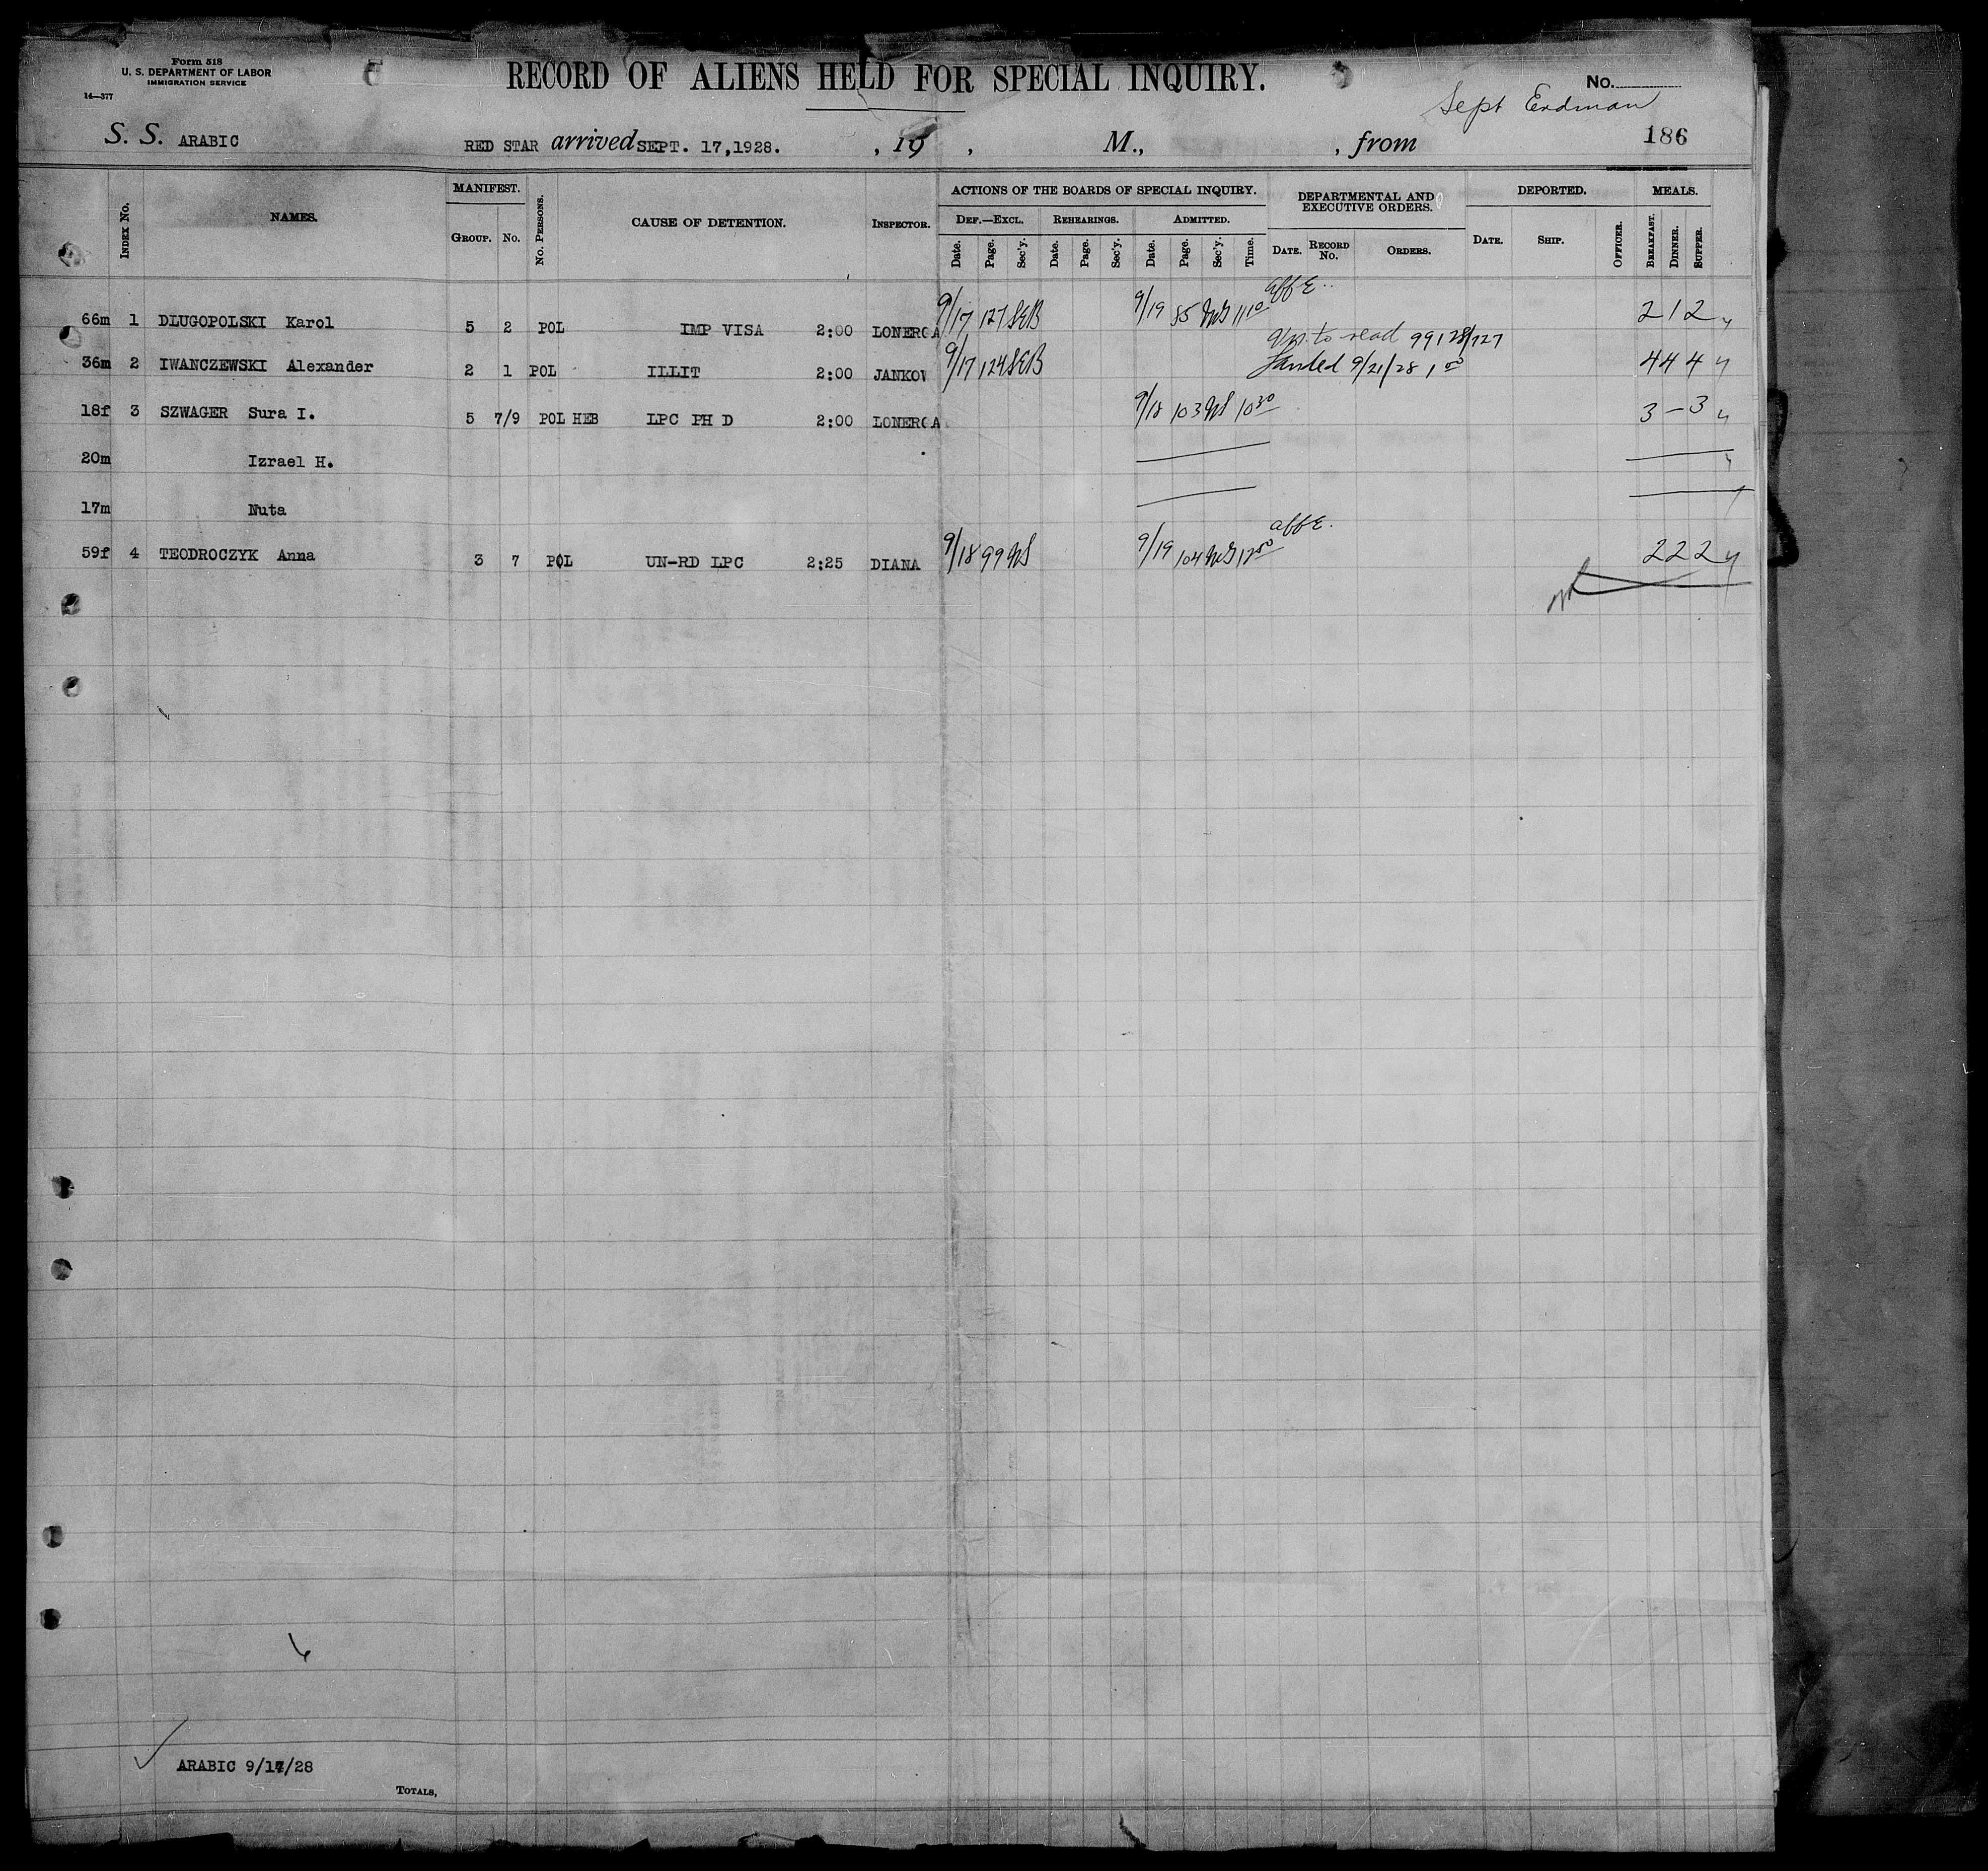 Form 518
U. S. DEPARTMENT OF LABOR
IMMIGRATION SERVICE
14—377
RECORD OF ALIENS HELD FOR SPECIAL INQUIRY.
No.
Sept Erdman
S. S. ARABIC RED STAR arrived SEPT. 17,1928. , 19 , M., , from 186
INDEX No. NAMES. MANIFEST. GROUP. No. No. PERSONS. CAUSE OF DETENTION. INSPECTOR. ACTIONS OF THE BOARDS OF SPECIAL INQUIRY. DEF.—EXCL. REHEARINGS. ADMITTED. DEPARTMENTAL AND EXECUTIVE ORDERS. DEPORTED. MEALS.
Date. Page. Sec'y. Date. Page. Sec'y. Date. Page. Sec'y. Time. DATE. RECORD No. ORDERS. DATE. SHIP. OFFICER. BREAKFAST. DINNER. SUPPER.
66m 1 DLUGOPOLSKI Karol 5 2 POL IMP VISA 2:00 LONERGA 9/17 127 SEB 9/19 85 11 10 2 1 2
to read 99128/727
36m 2 IWANCZEWSKI Alexander 2 1 POL ILLIT 2:00 JANKOW 9/17 124 SEB Landed 9/21/28 1 00 4 4 4
18f 3 SZWAGER Sura I. 5 7/9 POL HEB LPC PH D 2:00 LONERGA 9/18 103 10 30 3 – 3
20m Izrael H.
17m Nuta
59f 4 TEODROCZYK Anna 3 7 POL UN-RD LPC 2:25 DIANA 9/18 99 9/19 104 12 50 2 2 2
ARABIC 9/17/28
TOTALS,